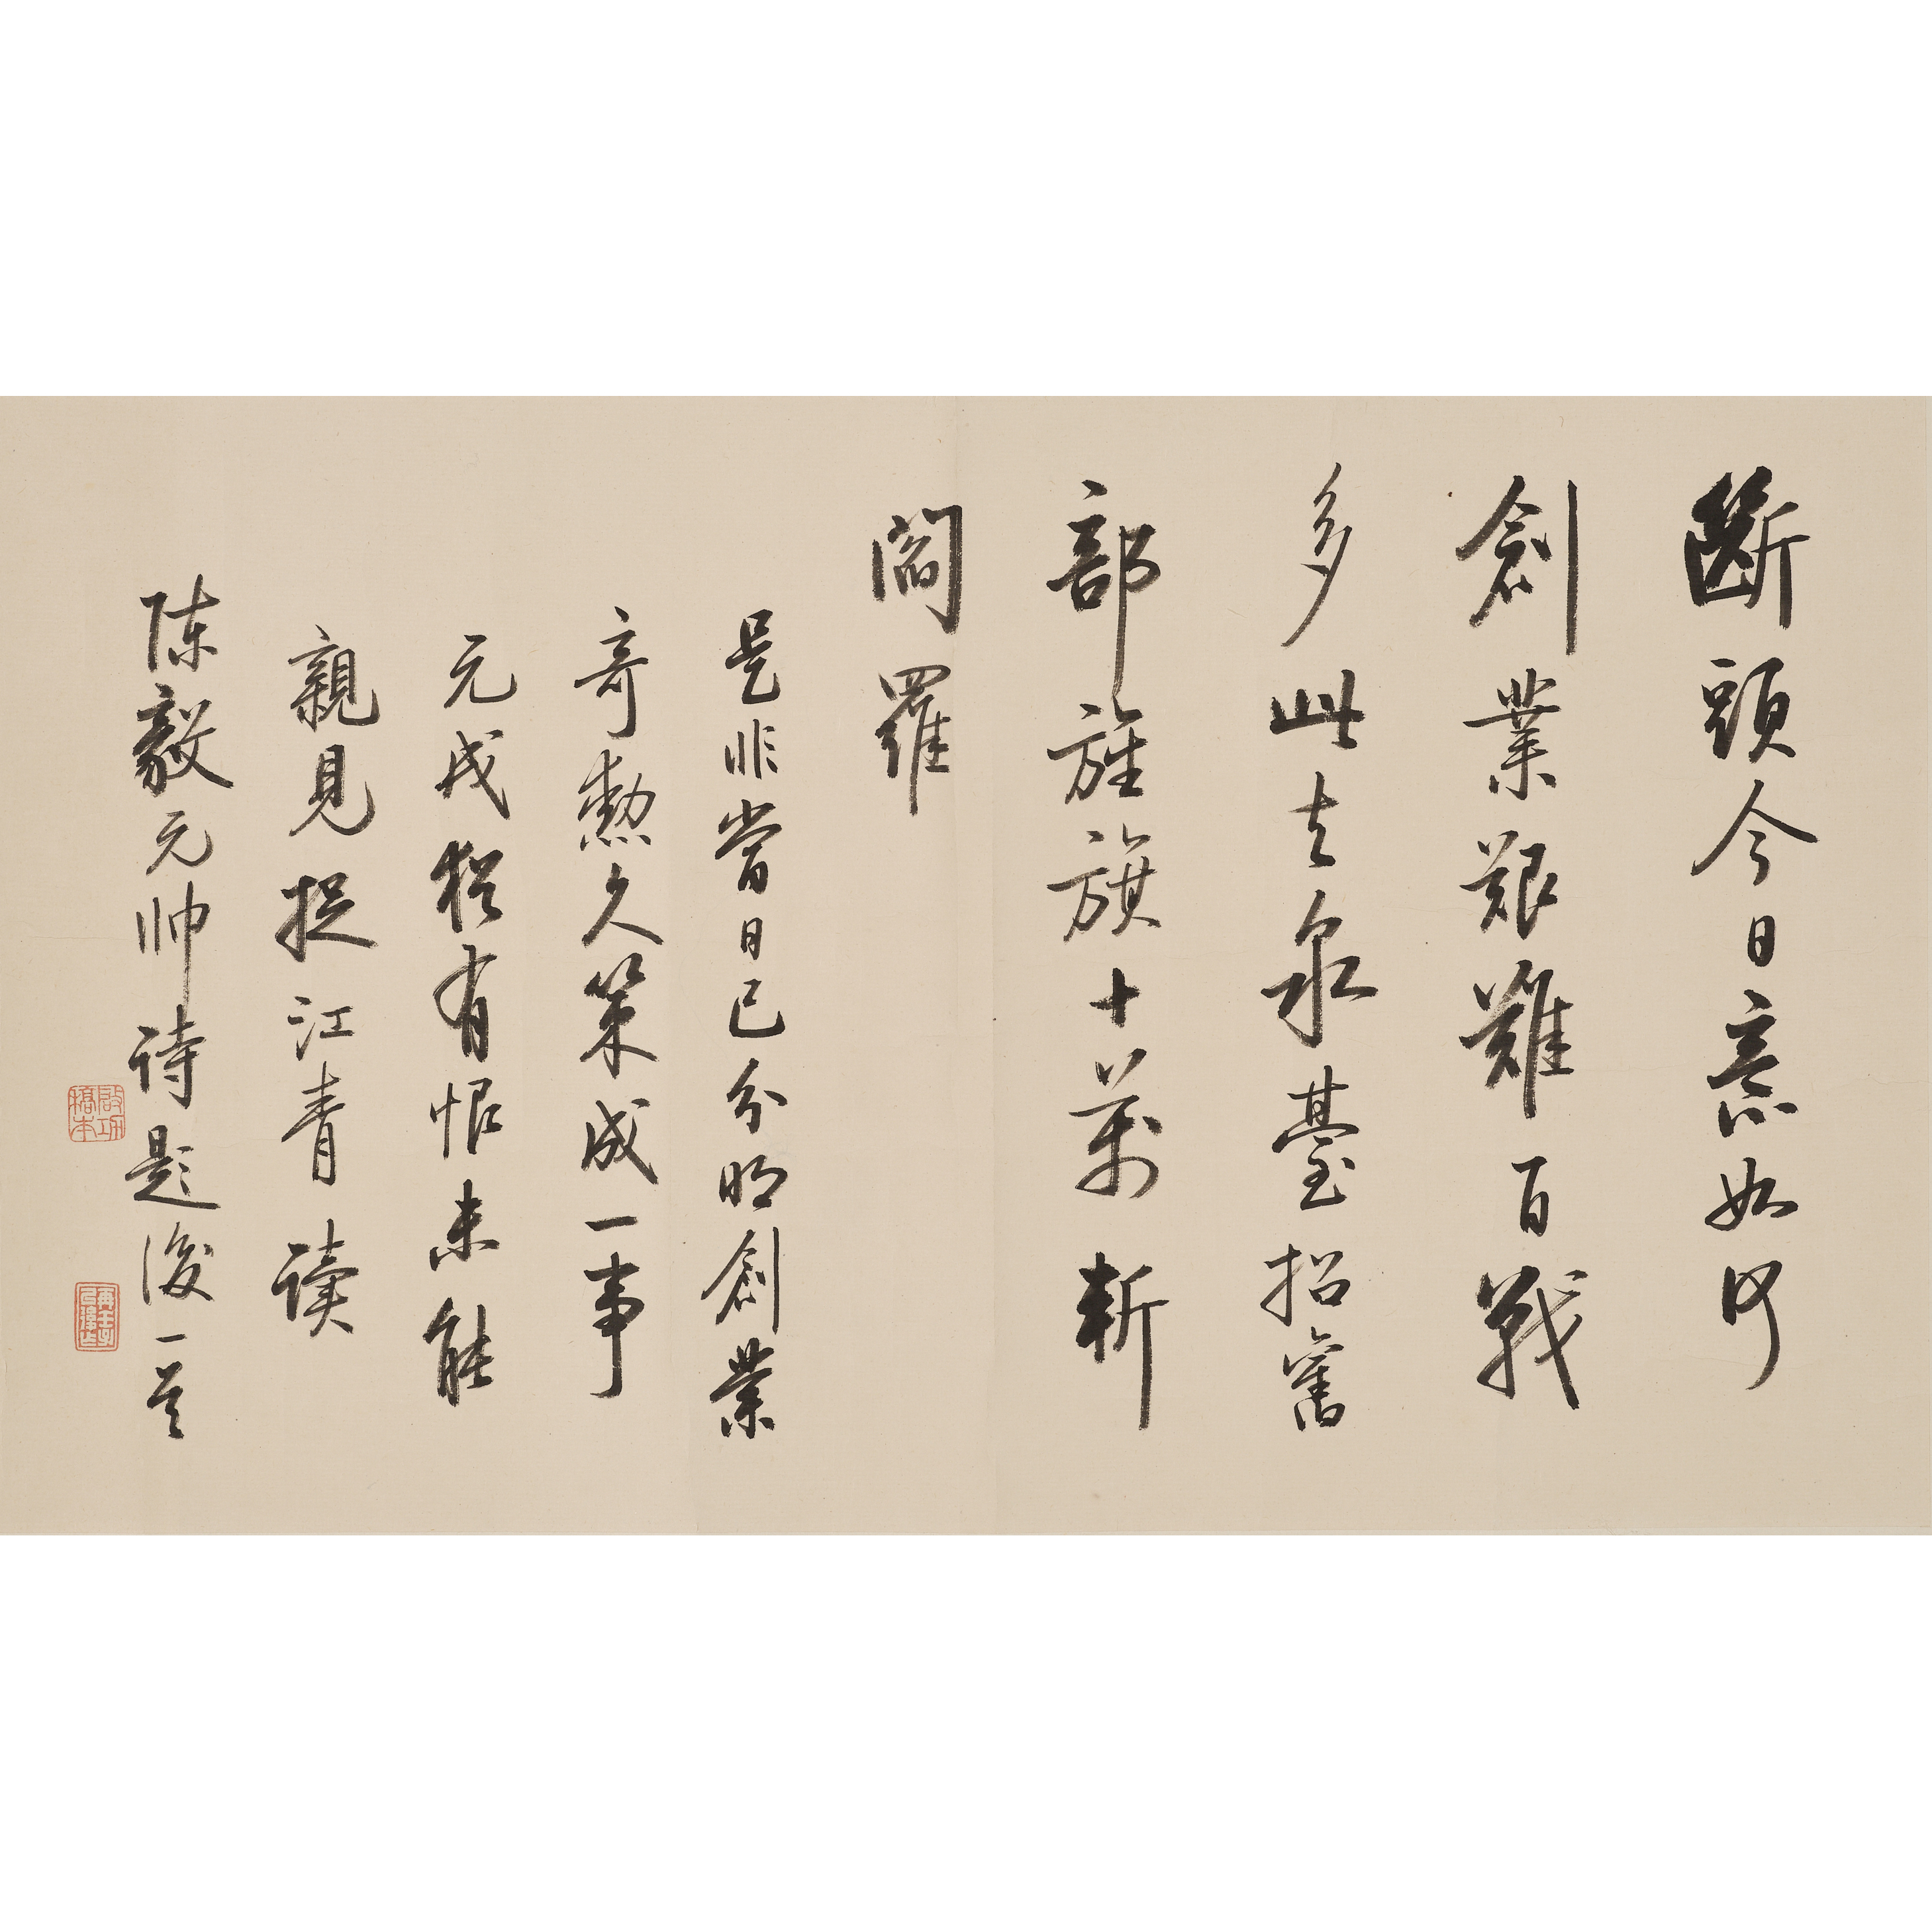 斷頭今日意如何
創業艱難百戰
多此去泉臺招舊
部旌旗十萬斬
閻羅
是非當日已分明創業
奇勲久策成一事
元戎猶有恨未能
親見捉江青读
陈毅元帅诗題後一首
啟功
稿本